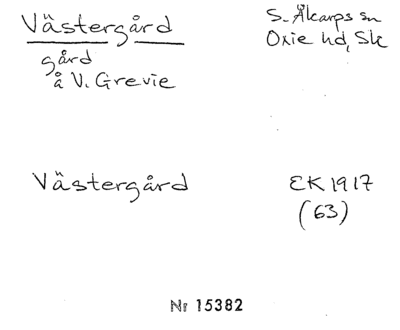 Västergård
S. Åkarps sn
Oxie hd, Sk
gård
å V. Grevie
Västergård
EK 1917
(63)
Nr 15382